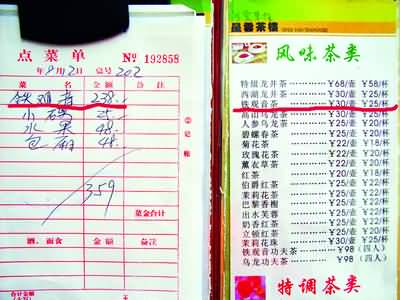 点菜单 No 192858
年8月2日 台号202
菜名 金额 备注
铁观音 238.
小碟
水果 48.
包厢 48.
359
菜金合计
②记帐
酒.面食 金额 备注
品香茶楼
风味茶类
特级龙井茶………¥68/壶 ¥58/杯
西湖龙井茶………¥30/壶 ¥25/杯
铁观音茶…………¥30/壶 ¥25/杯
高山乌龙茶………¥30/壶 ¥25/杯
人参乌龙茶………¥25/壶 ¥20/杯
碧螺春茶…………¥25/壶 ¥20/杯
菊花茶……………¥25/壶 ¥22/杯
玫瑰花茶…………¥25/壶 ¥22/杯
薰衣草茶…………¥25/壶 ¥22/杯
红茶………………¥25/壶 ¥20/杯
伯爵红茶…………¥25/壶 ¥22/杯
茉莉花茶…………¥25/壶 ¥22/杯
巴黎香榭…………¥25/壶 ¥22/杯
出水芙蓉…………¥25/壶 ¥20/杯
奶香红茶…………¥25/壶 ¥20/杯
立顿红茶…………¥25/壶 ¥20/杯
茉莉花珠…………¥30/壶 ¥25/杯
铁观音功夫茶……¥98(四人)
乌龙功夫茶………¥98(四人)
特调茶类